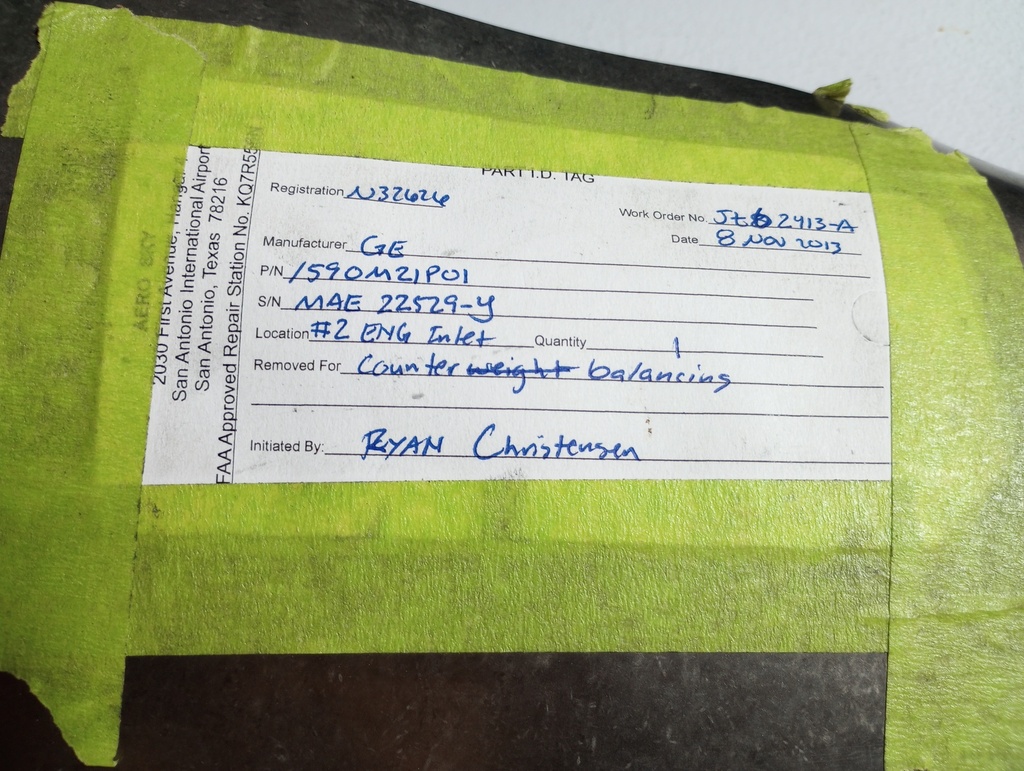 PART I.D. TAG
Registration N32626
Work Order No. 2913-A
Date 8 NOV 2013
Manufacturer GE
P/N 1590M21P01
S/N MAE 22529-Y
Location #2 ENG Inlet Quantity 1
Removed For Counter weight balancing
Initiated By: RYAN Christensen
AERO SKY
2030 First Avenue,
San Antonio International Airport
San Antonio, Texas 78216
FAA Approved Repair Station No.